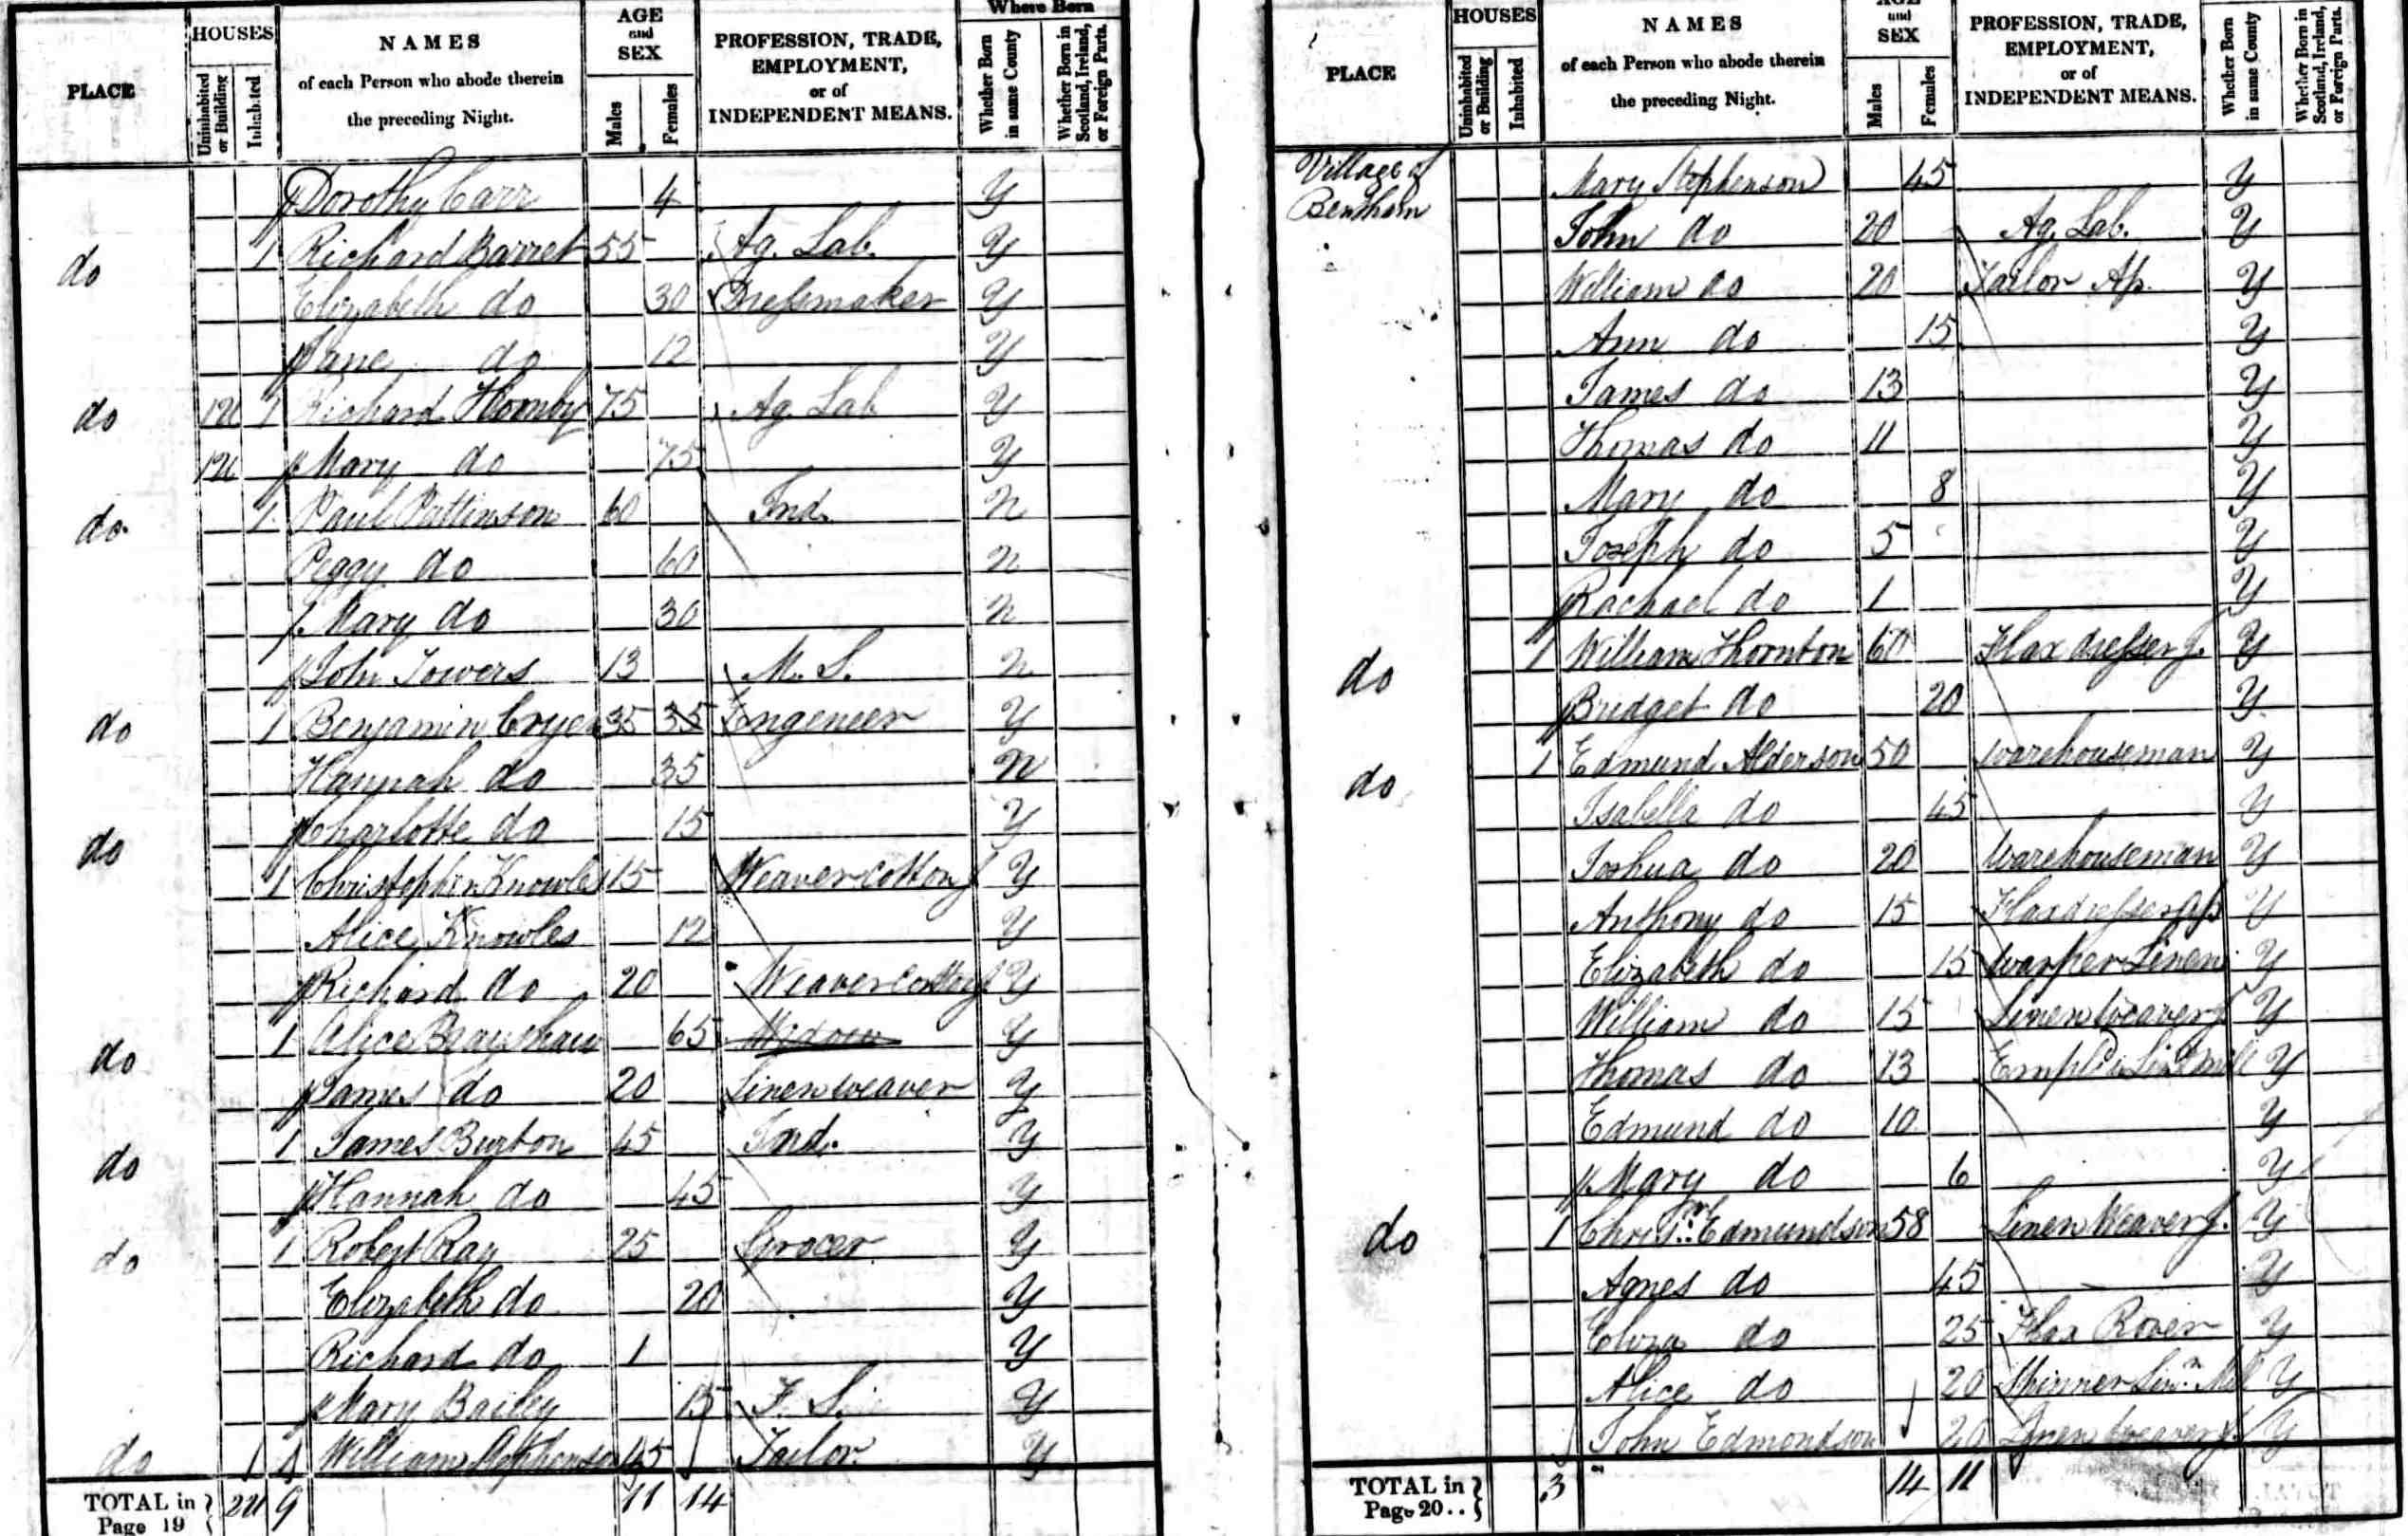 PLACE
HOUSES
Uninhabited or Building
Inhabited
NAMES
of each Person who abode therein
the preceding Night.
AGE
and
SEX
Males
Females
PROFESSION, TRADE,
EMPLOYMENT,
or of
INDEPENDENT MEANS.
Where Born
Whether Born in same County
Whether Born in Scotland, Ireland, or Foreign Parts.
Dorothy Carr 4 Y
do 1 Richard Barret 55 Ag. Lab. Y
Elizabeth do 30 Dressmaker Y
Jane do 12 Y
do 1U 1 Richard Hornby 75 Ag. Lab Y
1U Mary do 75 Y
do 1 Paul Pattinson 60 Ind. N
Peggy do 60 N
Mary do 30 N
John Towers 13 M. S. N
do 1 Benjamin Cryer 35 35 Engeneer Y
Hannah do 35 N
Charlotte do 15 Y
do 1 Christopher Knowles 15 Weaver Cotton J Y
Alice Knowles 12 Y
Richard do 20 Weaver Cotton J Y
do 1 Alice Brayshaw 65 Widow Y
James do 20 Linen weaver Y
do 1 James Burton 45 Ind. Y
Hannah do 45 Y
do 1 Robert Ray 25 Grocer Y
Elizabeth do 20 Y
Richard do 1 Y
Mary Bailey 15 F. S. Y
do 1 William Stephenson 45 Tailor. Y
TOTAL in Page 19 2U 9 11 14
PLACE
HOUSES
Uninhabited or Building
Inhabited
NAMES
of each Person who abode therein
the preceding Night.
AGE
and
SEX
Males
Females
PROFESSION, TRADE,
EMPLOYMENT,
or of
INDEPENDENT MEANS.
Whether Born in same County
Whether Born in Scotland, Ireland, or Foreign Parts.
Village of Mary Stephenson 45 Y
Bentham John do 20 Ag. Lab. Y
William do 20 Tailor Ap. Y
Ann do 15 Y
James do 13 Y
Thomas do 11 Y
Mary do 8 Y
Joseph do 5 Y
Rachael do 1 Y
do 1 William Thornton 60 Flax dresser J. Y
Bridget do 20 Y
do 1 Edmund Alderson 50 Warehouseman Y
Isabella do 45 Y
Joshua do 20 Warehouseman Y
Anthony do 15 Flaxdresser Ap Y
Elizabeth do 15 Warper Linen Y
William do 15 Linen Weaver J Y
Thomas do 13 Y
Edmund do 10 Y
Mary do 6 Y
do 1 Chrisr. Edmundson 58 Linen Weaver J. Y
Agnes do 45 Y
Eliza do 25 Flax Rover Y
Alice do 20 Spinner Lin.n Mill Y
John Edmondson 20 Linen Weaver J Y
TOTAL in Page 20.. 3 14 11